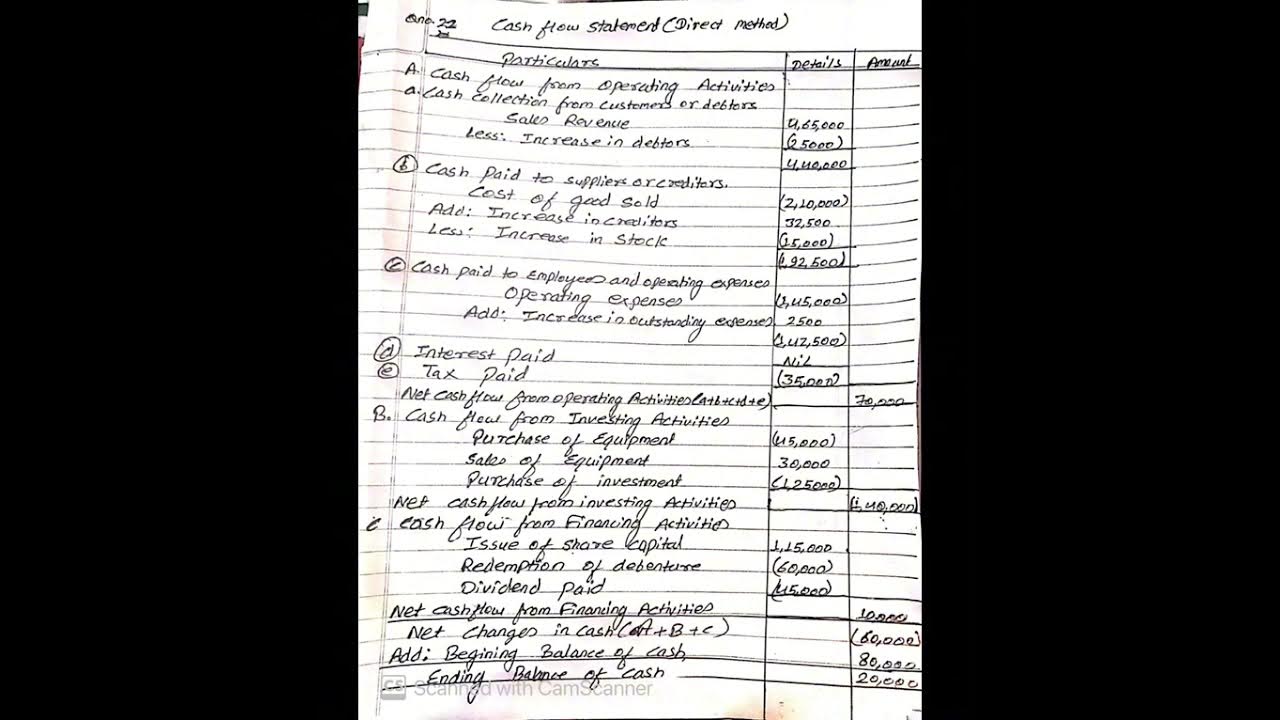 Qno. 22 Cash flow statement (Direct method)
Particulars Details Amount
A. Cash flow from operating Activities
a. Cash collection from customers or debtors
Sales Revenue 4,65,000
Less: Increase in debtors (25000)
4,40,000
(b) Cash paid to suppliers or creditors.
Cost of good sold (2,10,000)
Add: Increase in creditors 32,500
Less: Increase in stock (15,000)
(1,92,500)
(c) Cash paid to Employees and operating expenses
Operating expenses (1,45,000)
Add: Increase in outstanding expenses 2500
(1,42,500)
(d) Interest paid Nil
(e) Tax paid (35,000)
Net cash flow from operating Activities (a+b+c+d+e) 70,000
B. Cash flow from Investing Activities
Purchase of Equipment (45,000)
Sales of Equipment 30,000
Purchase of investment (1,25000)
Net cashflow from investing Activities (1,40,000)
C cash flow from Financing Activities
Issue of share capital 1,15,000
Redemption of debenture (60,000)
Dividend paid (45,000)
Net cashflow from Financing Activities 10,000
Net changes in cash (A+B+C) (60,000)
Add: Begining Balance of cash 80,000
Ending Balance of cash 20,000
CS Scanned with CamScanner